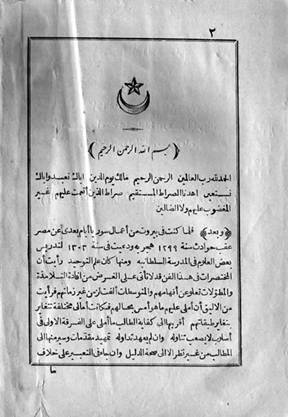 ٢
﴿ بسم الله الرحمن الرحيم ﴾
الحمد لله رب العالمين الرحمن الرحيم مالك يوم الدين اياك نعبد واياك
نستعين اهدنا الصراط المستقيم صراط الذين أنعمت عليهم غير
المغضوب عليهم ولا الضالين
﴿ وبعد ﴾ فلما كنت في بيروت من أعمال سوريا أيام بعدى عن مصر
عقب حوادث سنة ١٢٩٩ هجريه ودعيت في سنة ١٣٠٣ لتدريس
بعض العلوم في المدرسة السلطانيه ومنها كان علم التوحيد رأيت أن
المختصرات في هذا الفن قد لا تأتى على الغرض من افادة التلامذة
والمطولات تعلو عن أفهامهم والمتوسطات ألفت لزمن غير زمانهم فرأيت
من الاليق أن أملى عليهم ما هو أمس بحالهم فكانت أمالى مختلفة تتغاير
بتغاير طبقاتهم أقربها الى كفاية الطالب ما أملى على الفرقة الاولى في
أسلوب لا يصعب تناوله وان لم يعهد تداوله تمهيد مقدمات وسير منها الى
المطالب من غير نظر الا الى صحة الدليل وان جاء في التعبير على خلاف
ما